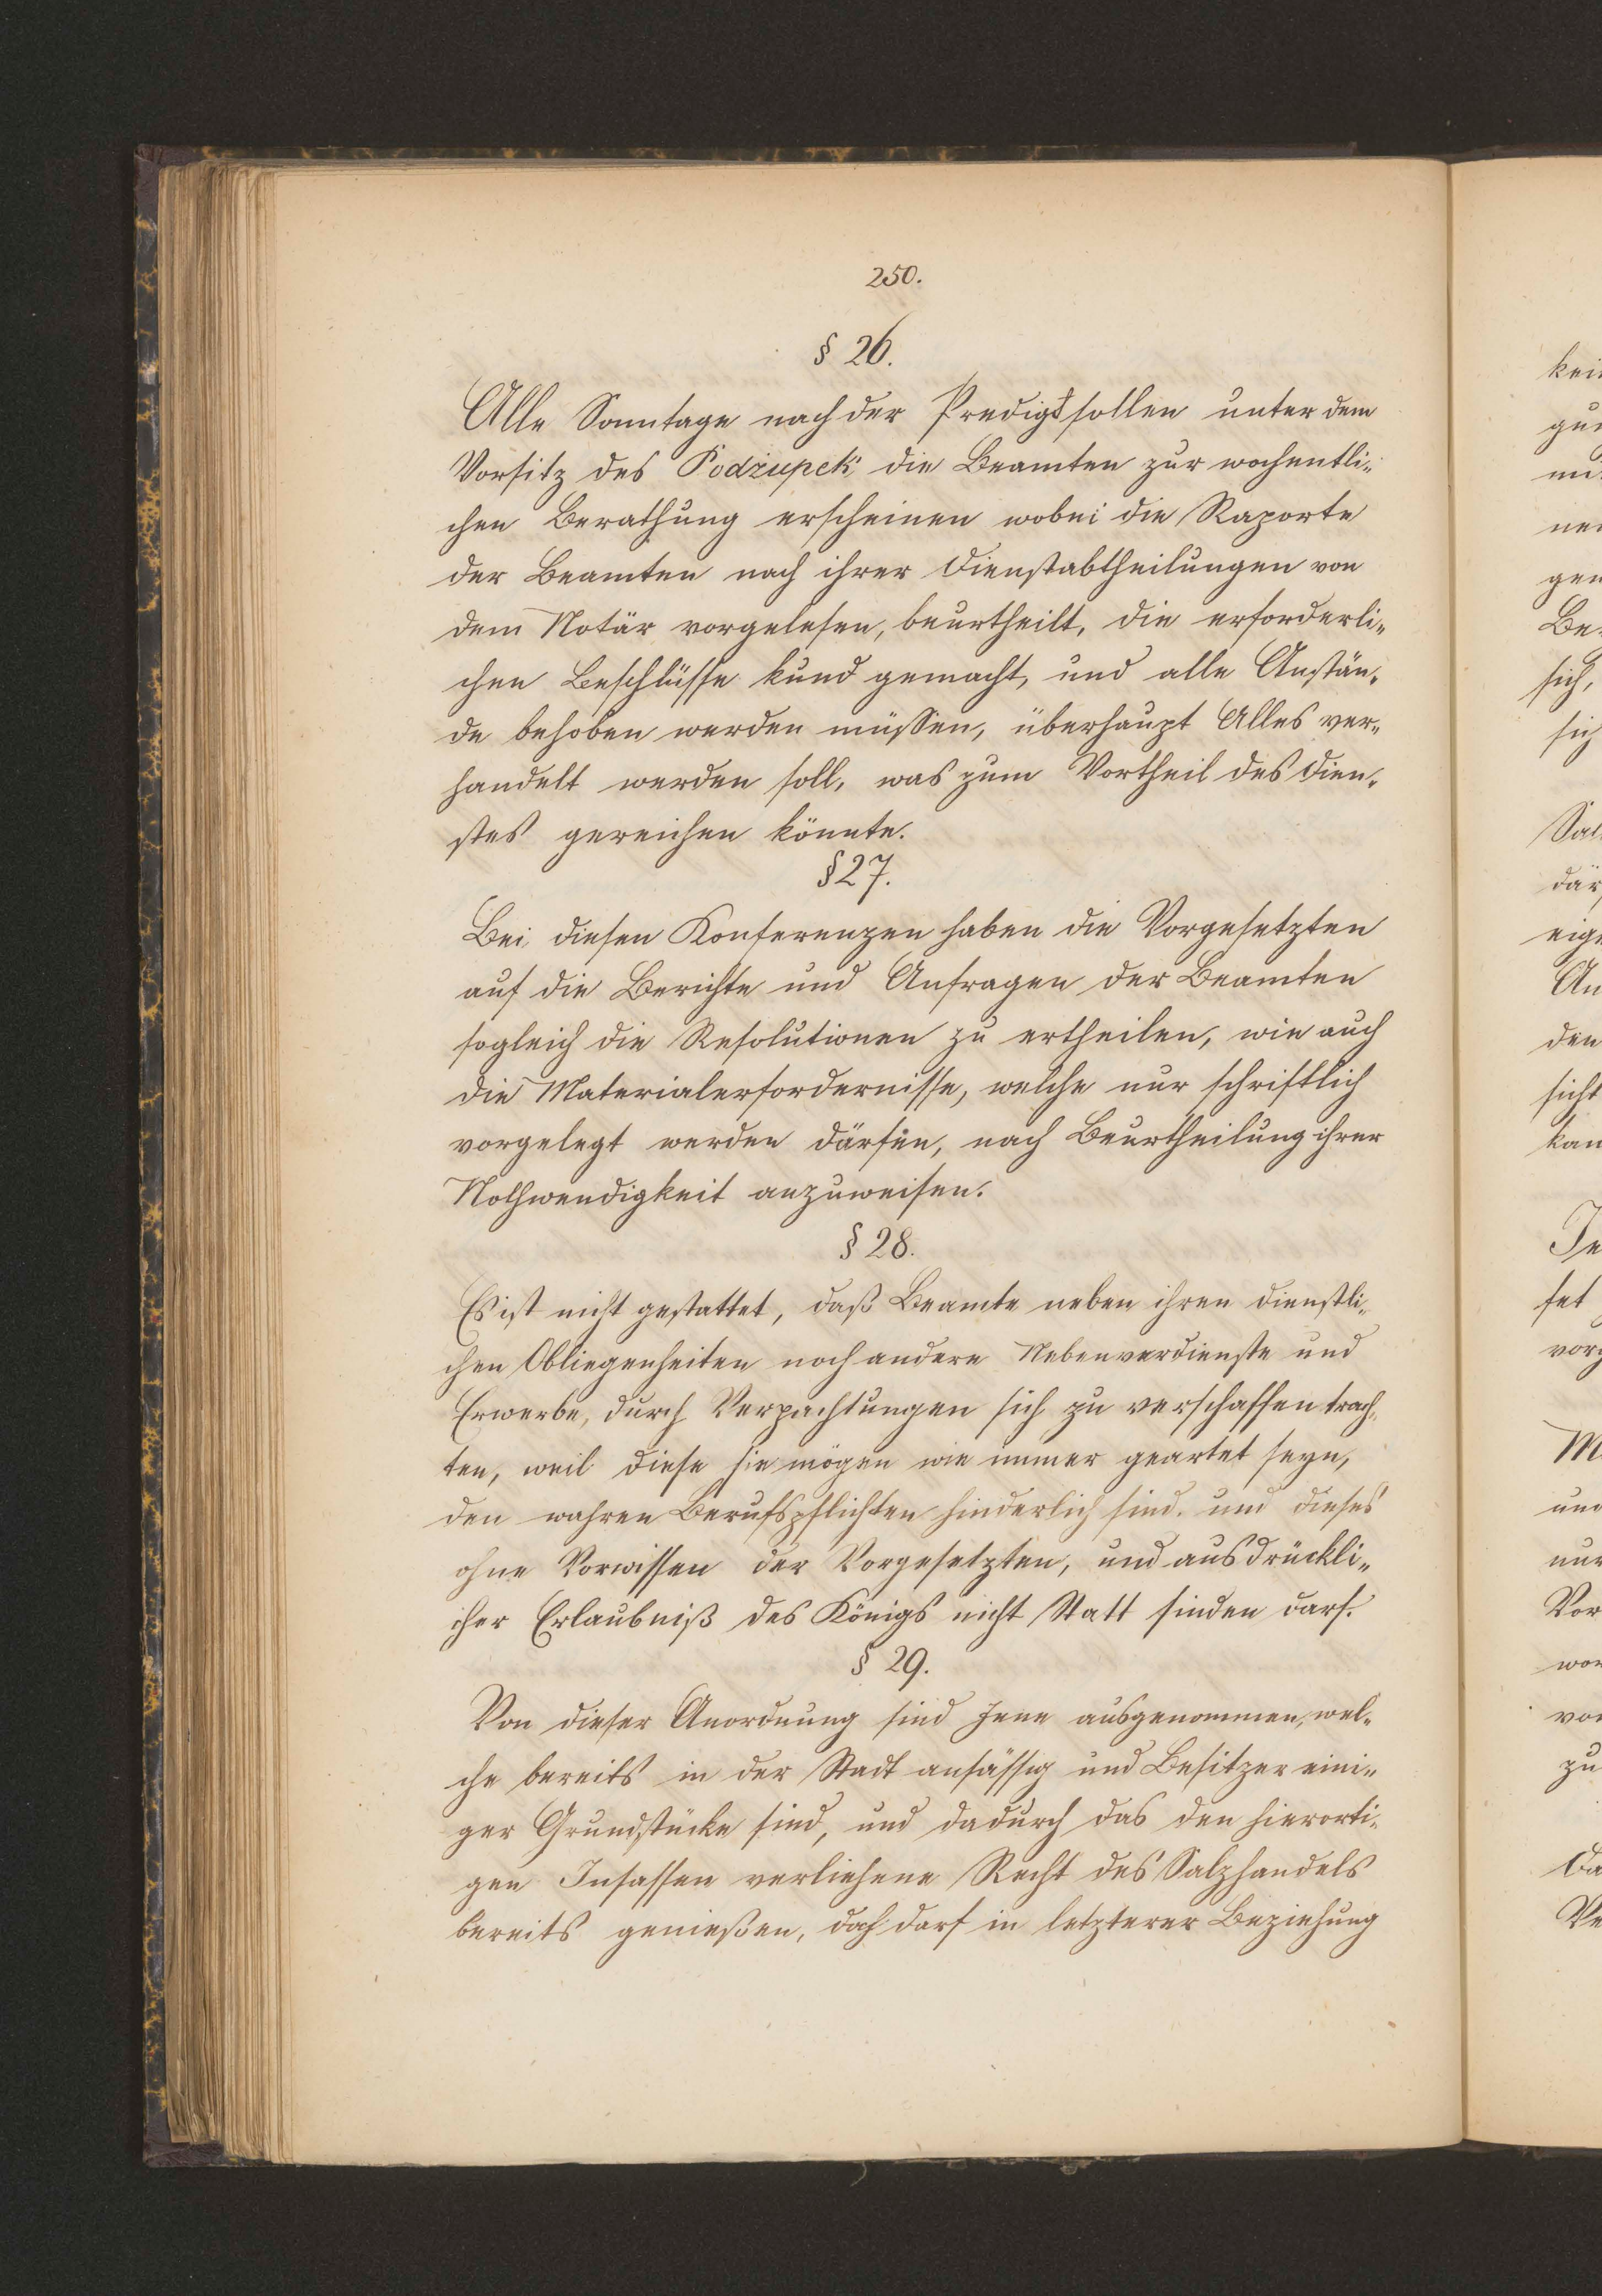 250.
§ 26.
Alle Sonntage nach der Predigt sollen unter dem
Vorsitz des Podżupek die Beamten zur wochentli-
chen Berathung erscheinen wobei die Raporte
der Beamten nach ihrer Dienstabtheilungen von
dem Notär vorgelesen, beurtheilt, die erforderli-
chen Beschlüsse kund gemacht, und alle Anstän-
de behoben werden müssen, überhaupt Alles ver-
handelt werden soll, was zum Vortheil des Dien-
stes gereichen könnte.
§ 27.
Bei diesen Konferenzen haben die Vorgesetzten
auf die Berichte und Anfragen der Beamten
sogleich die Resolutionen zu ertheilen, wie auch
die Materialerfordernisse, welche nur schriftlich
vorgelegt werden därfen, nach Beurtheilung ihrer
Nothwendigkeit anzuweisen.
§ 28.
Es ist nicht gestattet, daß Beamte neben ihren dienstli-
chen Obliegenheiten noch andere Nebenverdienste und
Erwerbe, durch Verpachtungen sich zu verschaffen trach-
ten, weil diese sie mögen wie immer geartet seyn,
den wahren Berufspflichten hinderlich sind. und dieses
ohne Vorwissen der Vorgesetzten, und ausdrückli-
cher Erlaubniß des Königs nicht Statt finden darf.
§ 29.
Von dieser Anordnung sind Jene ausgenommen, wel-
che bereits in der Stadt ansässig und Besitzer eini-
ger Grundstücke sind, und dadurch das den hierorti-
gen Insassen verliehene Recht des Salzhandels
bereits genießen, doch darf in letzterer Beziehung